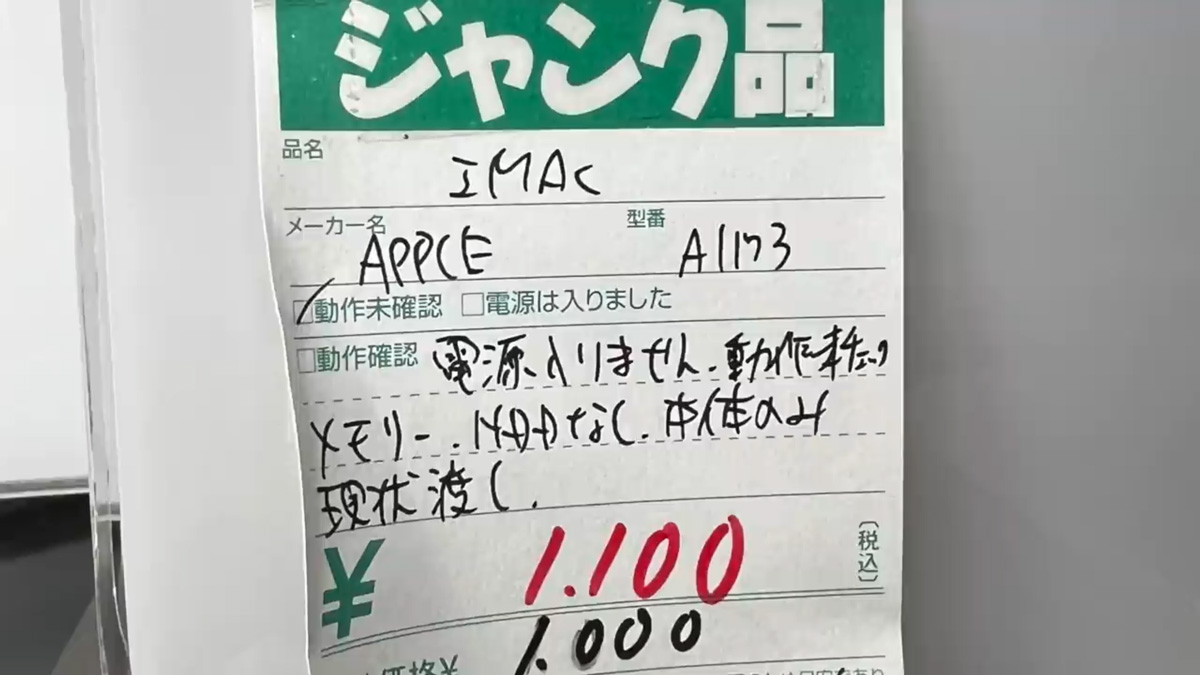 ジャンク品
品名 IMAC
メーカー名 APPLE 型番 A1173
□動作未確認 □電源は入りました
□動作確認 電源入りません.動作未チェック
メモリー.HDDなし.本体のみ
現状渡し.
¥ 1.100 (税込)
価格¥ 1.000